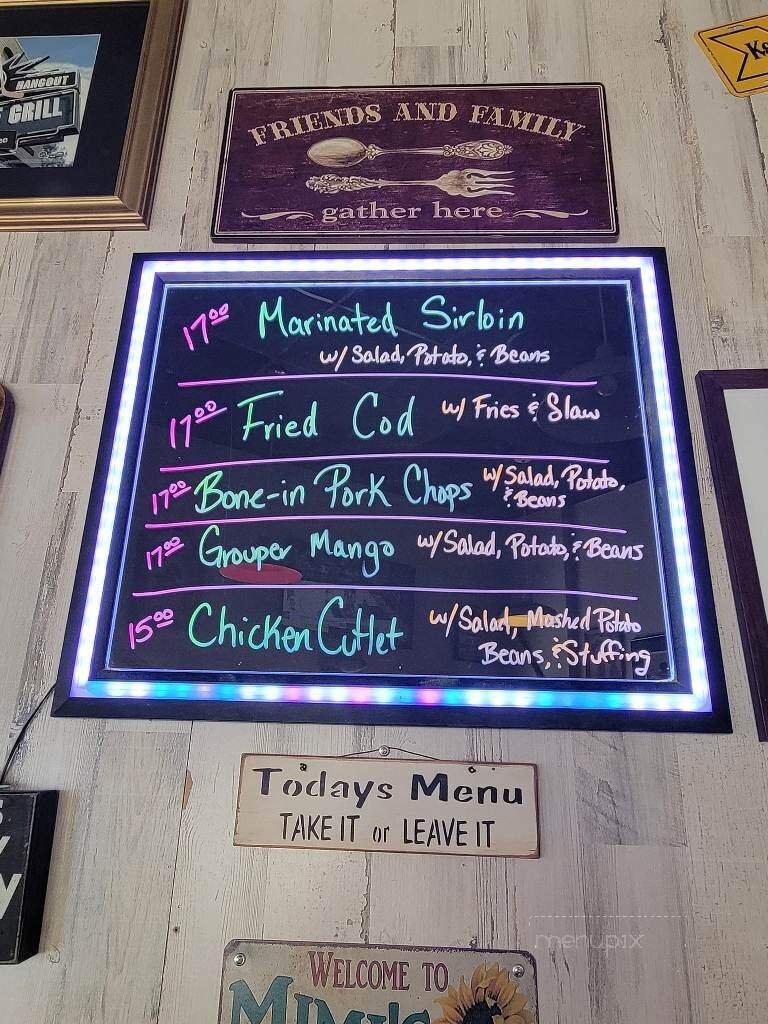 HANGOUT
GRILL
Ke
FRIENDS AND FAMILY
gather here
17⁰⁰ Marinated Sirloin
w/ Salad, Potato, & Beans
17⁰⁰ Fried Cod w/ Fries & Slaw
17⁰⁰ Bone-in Pork Chops w/ Salad, Potato,
& Beans
17⁰⁰ Grouper Mango w/ Salad, Potato, & Beans
15⁰⁰ Chicken Cutlet w/ Salad, Mashed Potato
Beans, & Stuffing
Todays Menu
TAKE IT or LEAVE IT
menupix
WELCOME TO
MIMI'S